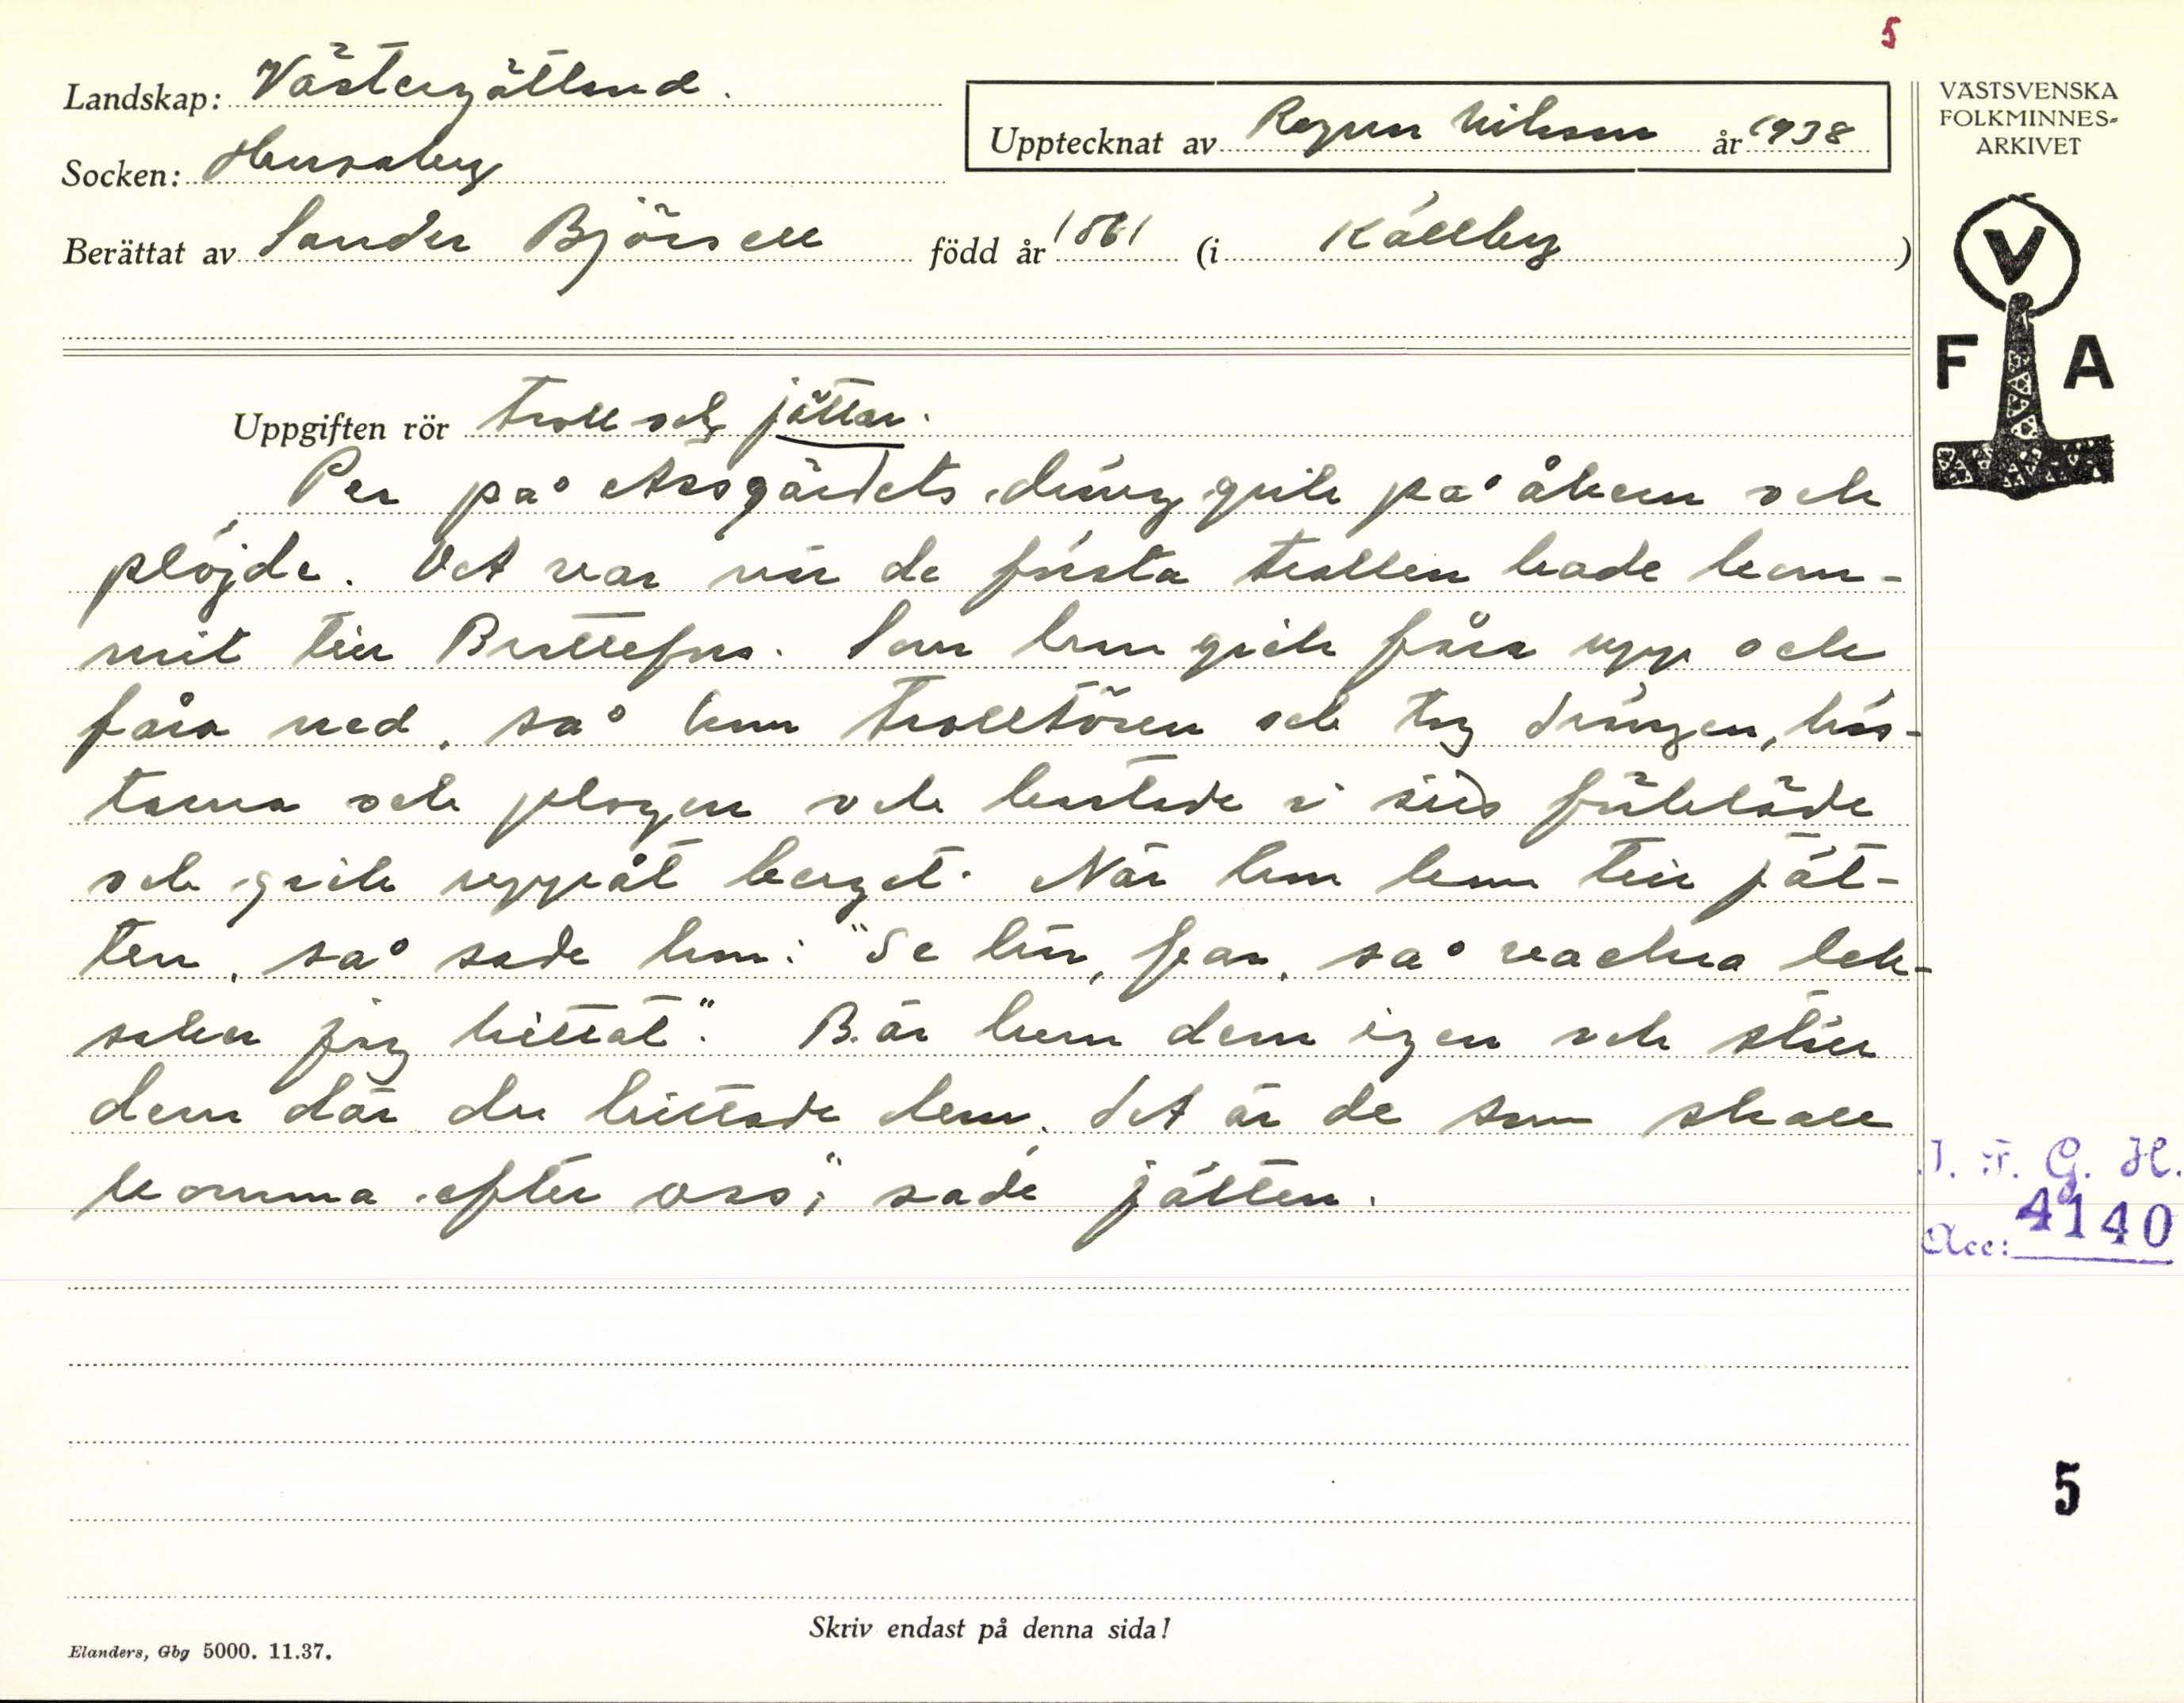 5
Landskap: Västergötland.
Upptecknat av Ragnar Nilsson år 1938
VÄSTSVENSKA
FOLKMINNES-
ARKIVET
Socken: Husaby
Berättat av Sander Björsell född år 1861 (i Källby)
V
F A
Uppgiften rör Troll och jättar.
Per på Assgärdets dräng gick på åkern och
plöjde. Det var när de första trollen hade kom-
mit till Brattefors. Som han gick fåra upp och
fåra ned, så kom trolltösen och tog drängen, häs-
tarna och plogen och kastade i sitt förkläde
och gick uppåt berget. När hon kom till jät-
ten, så sade hon: "Se här, far, så vackra lek-
saker jag hittat". Bär hem dem igen och ställ
dem där du hittade dem, det är de som skall
komma efter oss", sade jätten.
I. F. G. H.
Acc: 4140
5
Skriv endast på denna sida!
Elanders, Gbg 5000. 11.37.